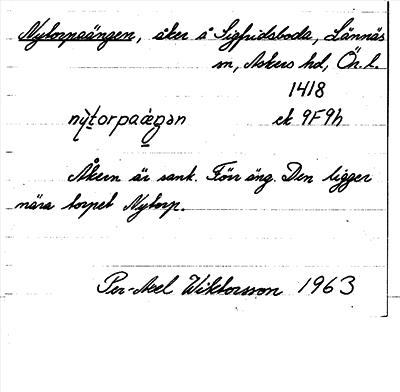 Nytorpaängen, åker å Sigfridsboda, Lännäs
sn, Askers hd, Ör. l.
1418
ek 9F9h
Åkern är sank. Förr äng. Den ligger
nära torpet Nytorp.
Per-Axel Wiktorsson 1963